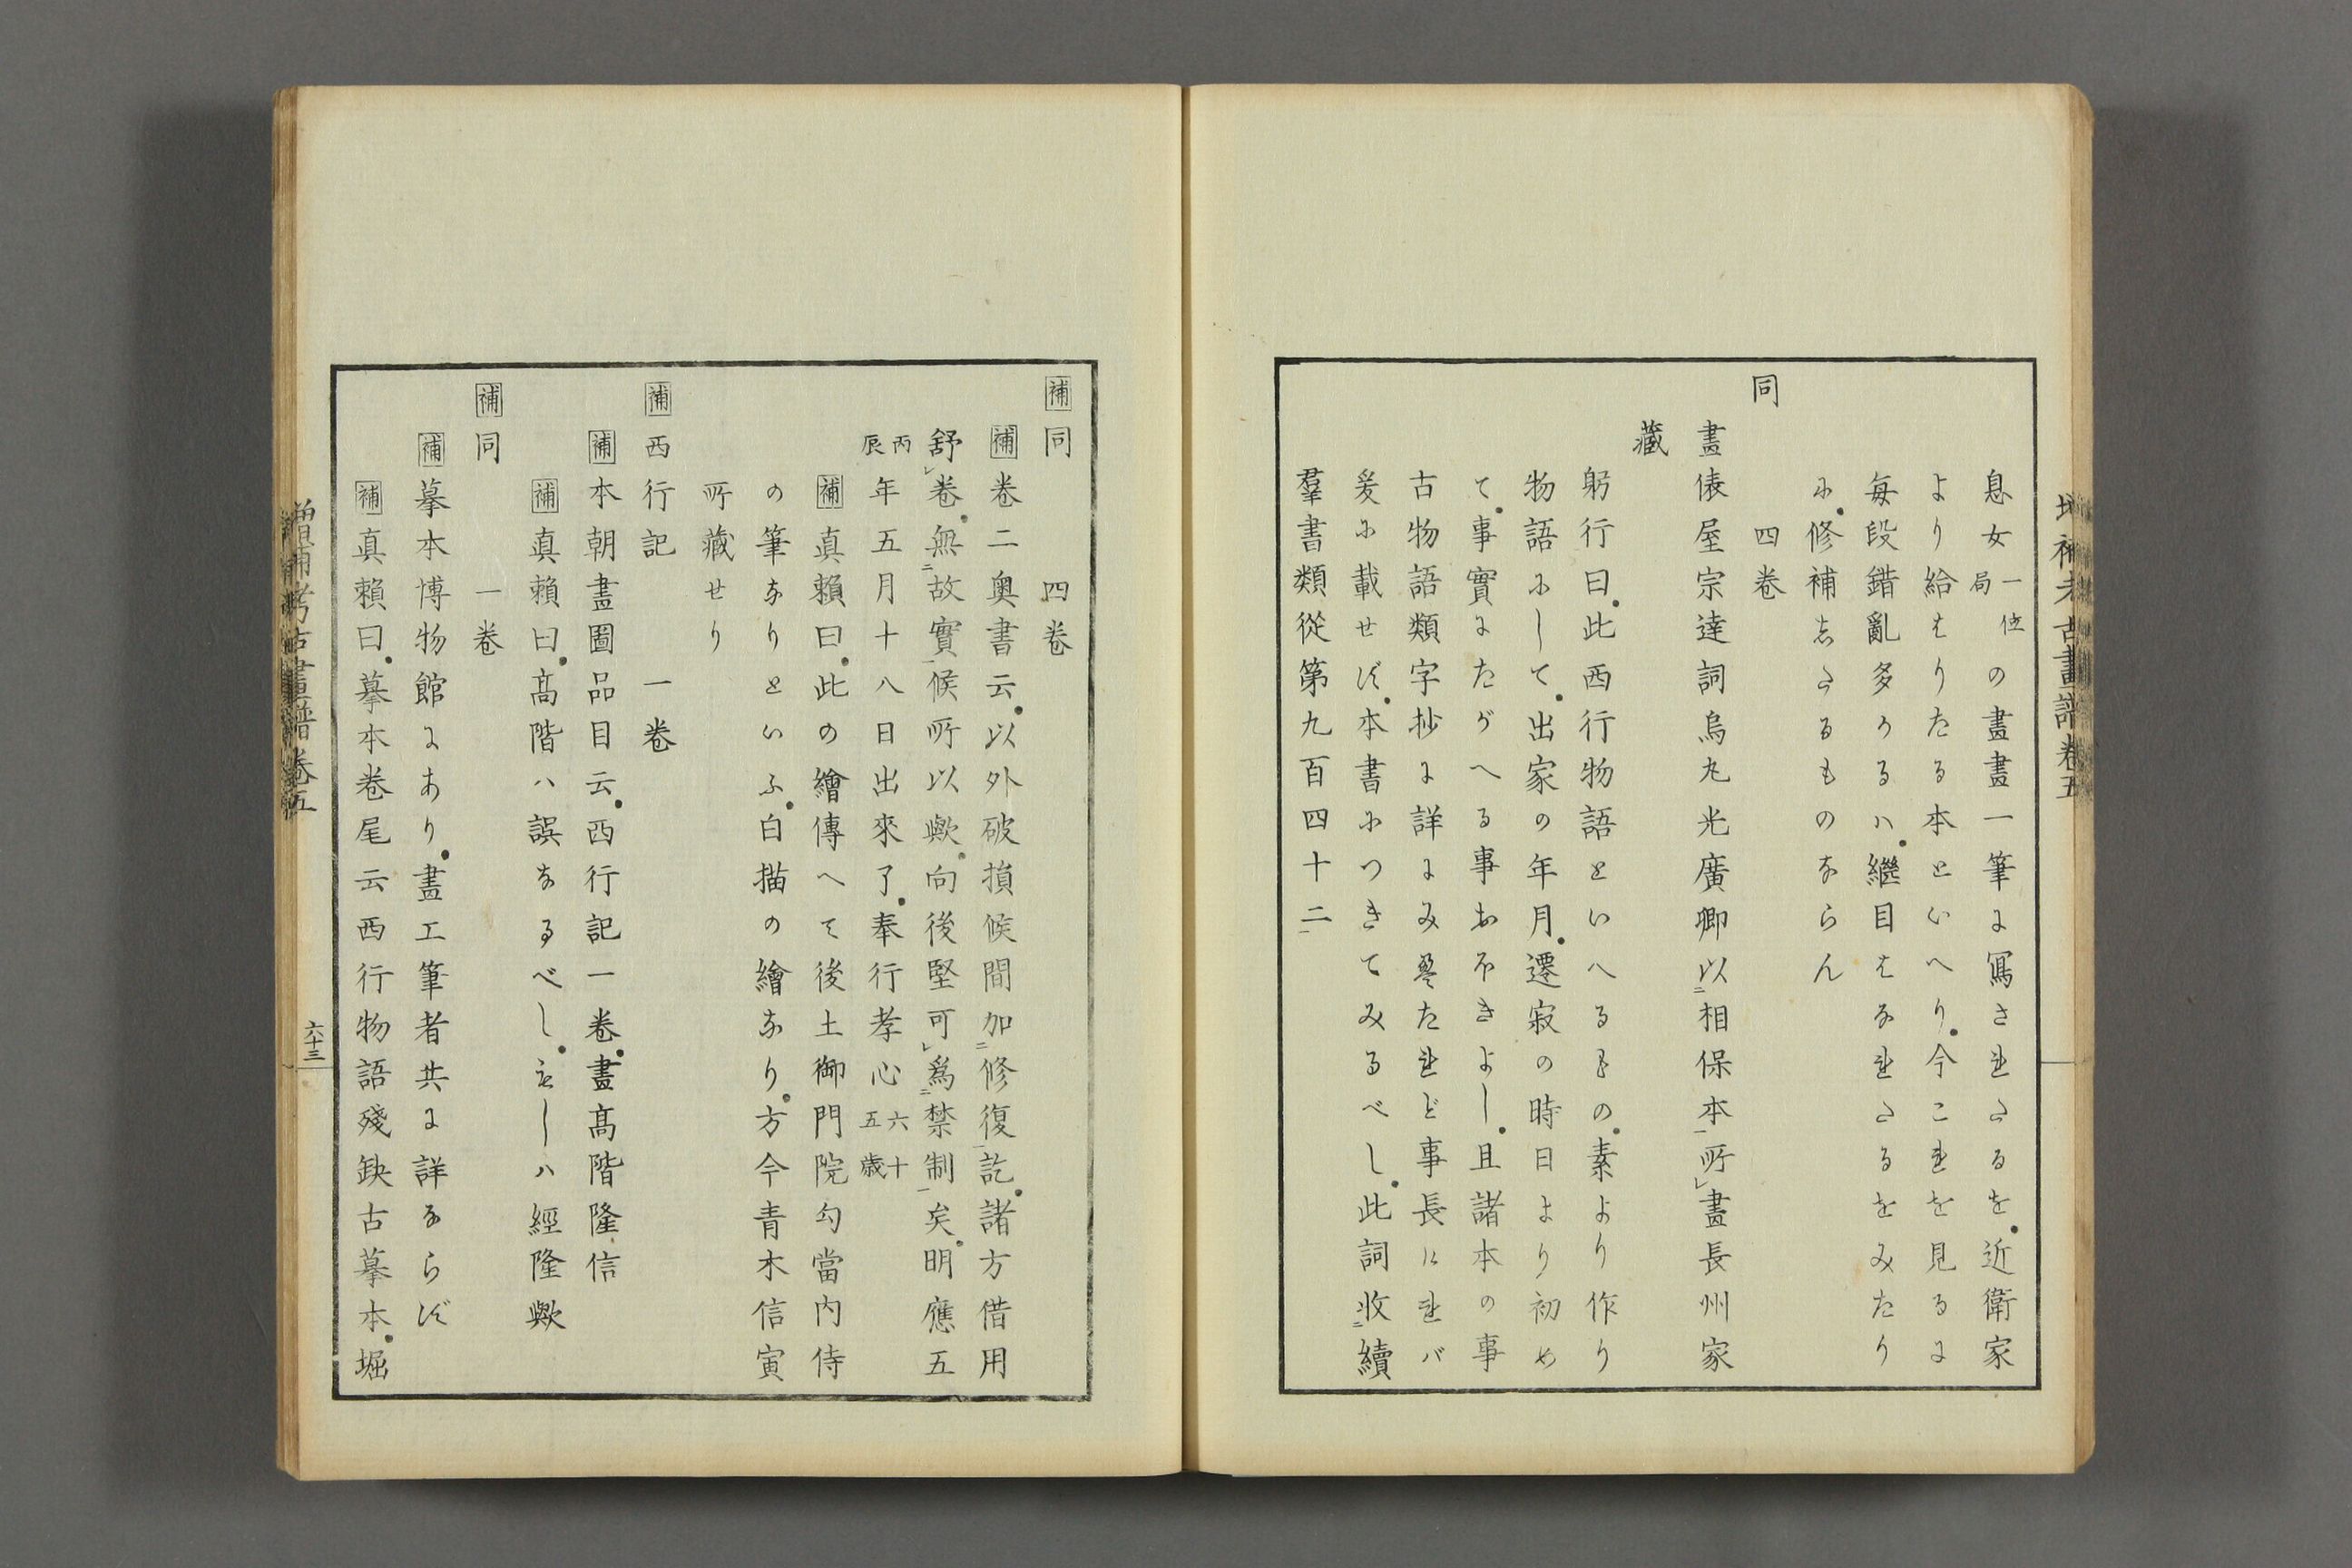 増補考古畫譜卷五
息女一位局の畫畫一筆に寫されたるを近衛家
より給はりたる本といへり今これを見るに
毎段錯亂多かるハ繼目はなれたるをみたり
に修補志たるものならん
同 四卷
畫俵屋宗達詞烏丸光廣卿以二相保本一所レ畫長州家
藏
躬行曰此西行物語といへるもの素より作り
物語にして出家の年月遷寂の時日より初め
て事實にたがへる事おほきよし且諸本の事
古物語類字抄に詳にみえたれど事長けれバ
爰に載せず本書につきてみるべし此詞收二續
羣書類從第九百四十二一
補同 四卷
補卷二奧書云以外破損候間加二修復一訖諸方借用
舒レ卷無二故實一候所以歟向後堅可レ爲二禁制一矣明應五
丙辰年五月十八日出來了奉行孝心六十五歲
補眞賴曰此の繪傳へて後土御門院勾當内侍
の筆なりといふ白描の繪なり方今青木信寅
所藏せり
補西行記 一卷
補本朝畫圖品目云西行記一卷畫髙階隆信
補眞賴曰髙階ハ誤なるべし若しハ經隆歟
補同 一卷
補摹本博物館にあり畫工筆者共に詳ならず
補眞賴曰摹本卷尾云西行物語殘缺古摹本堀
増補考古畫譜卷五
六十三